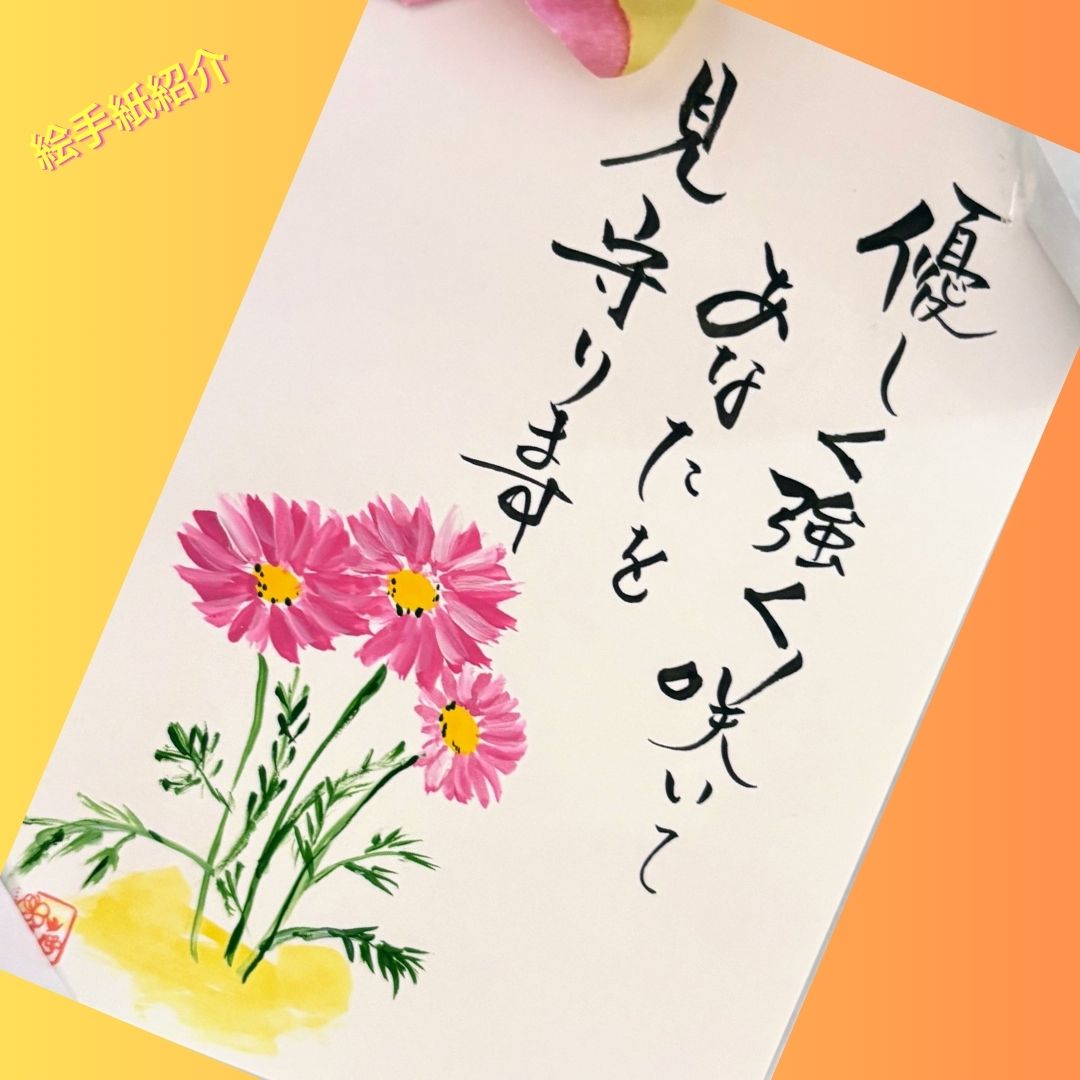 絵手紙紹介
優しく強く咲いて
あなたを
見守ります